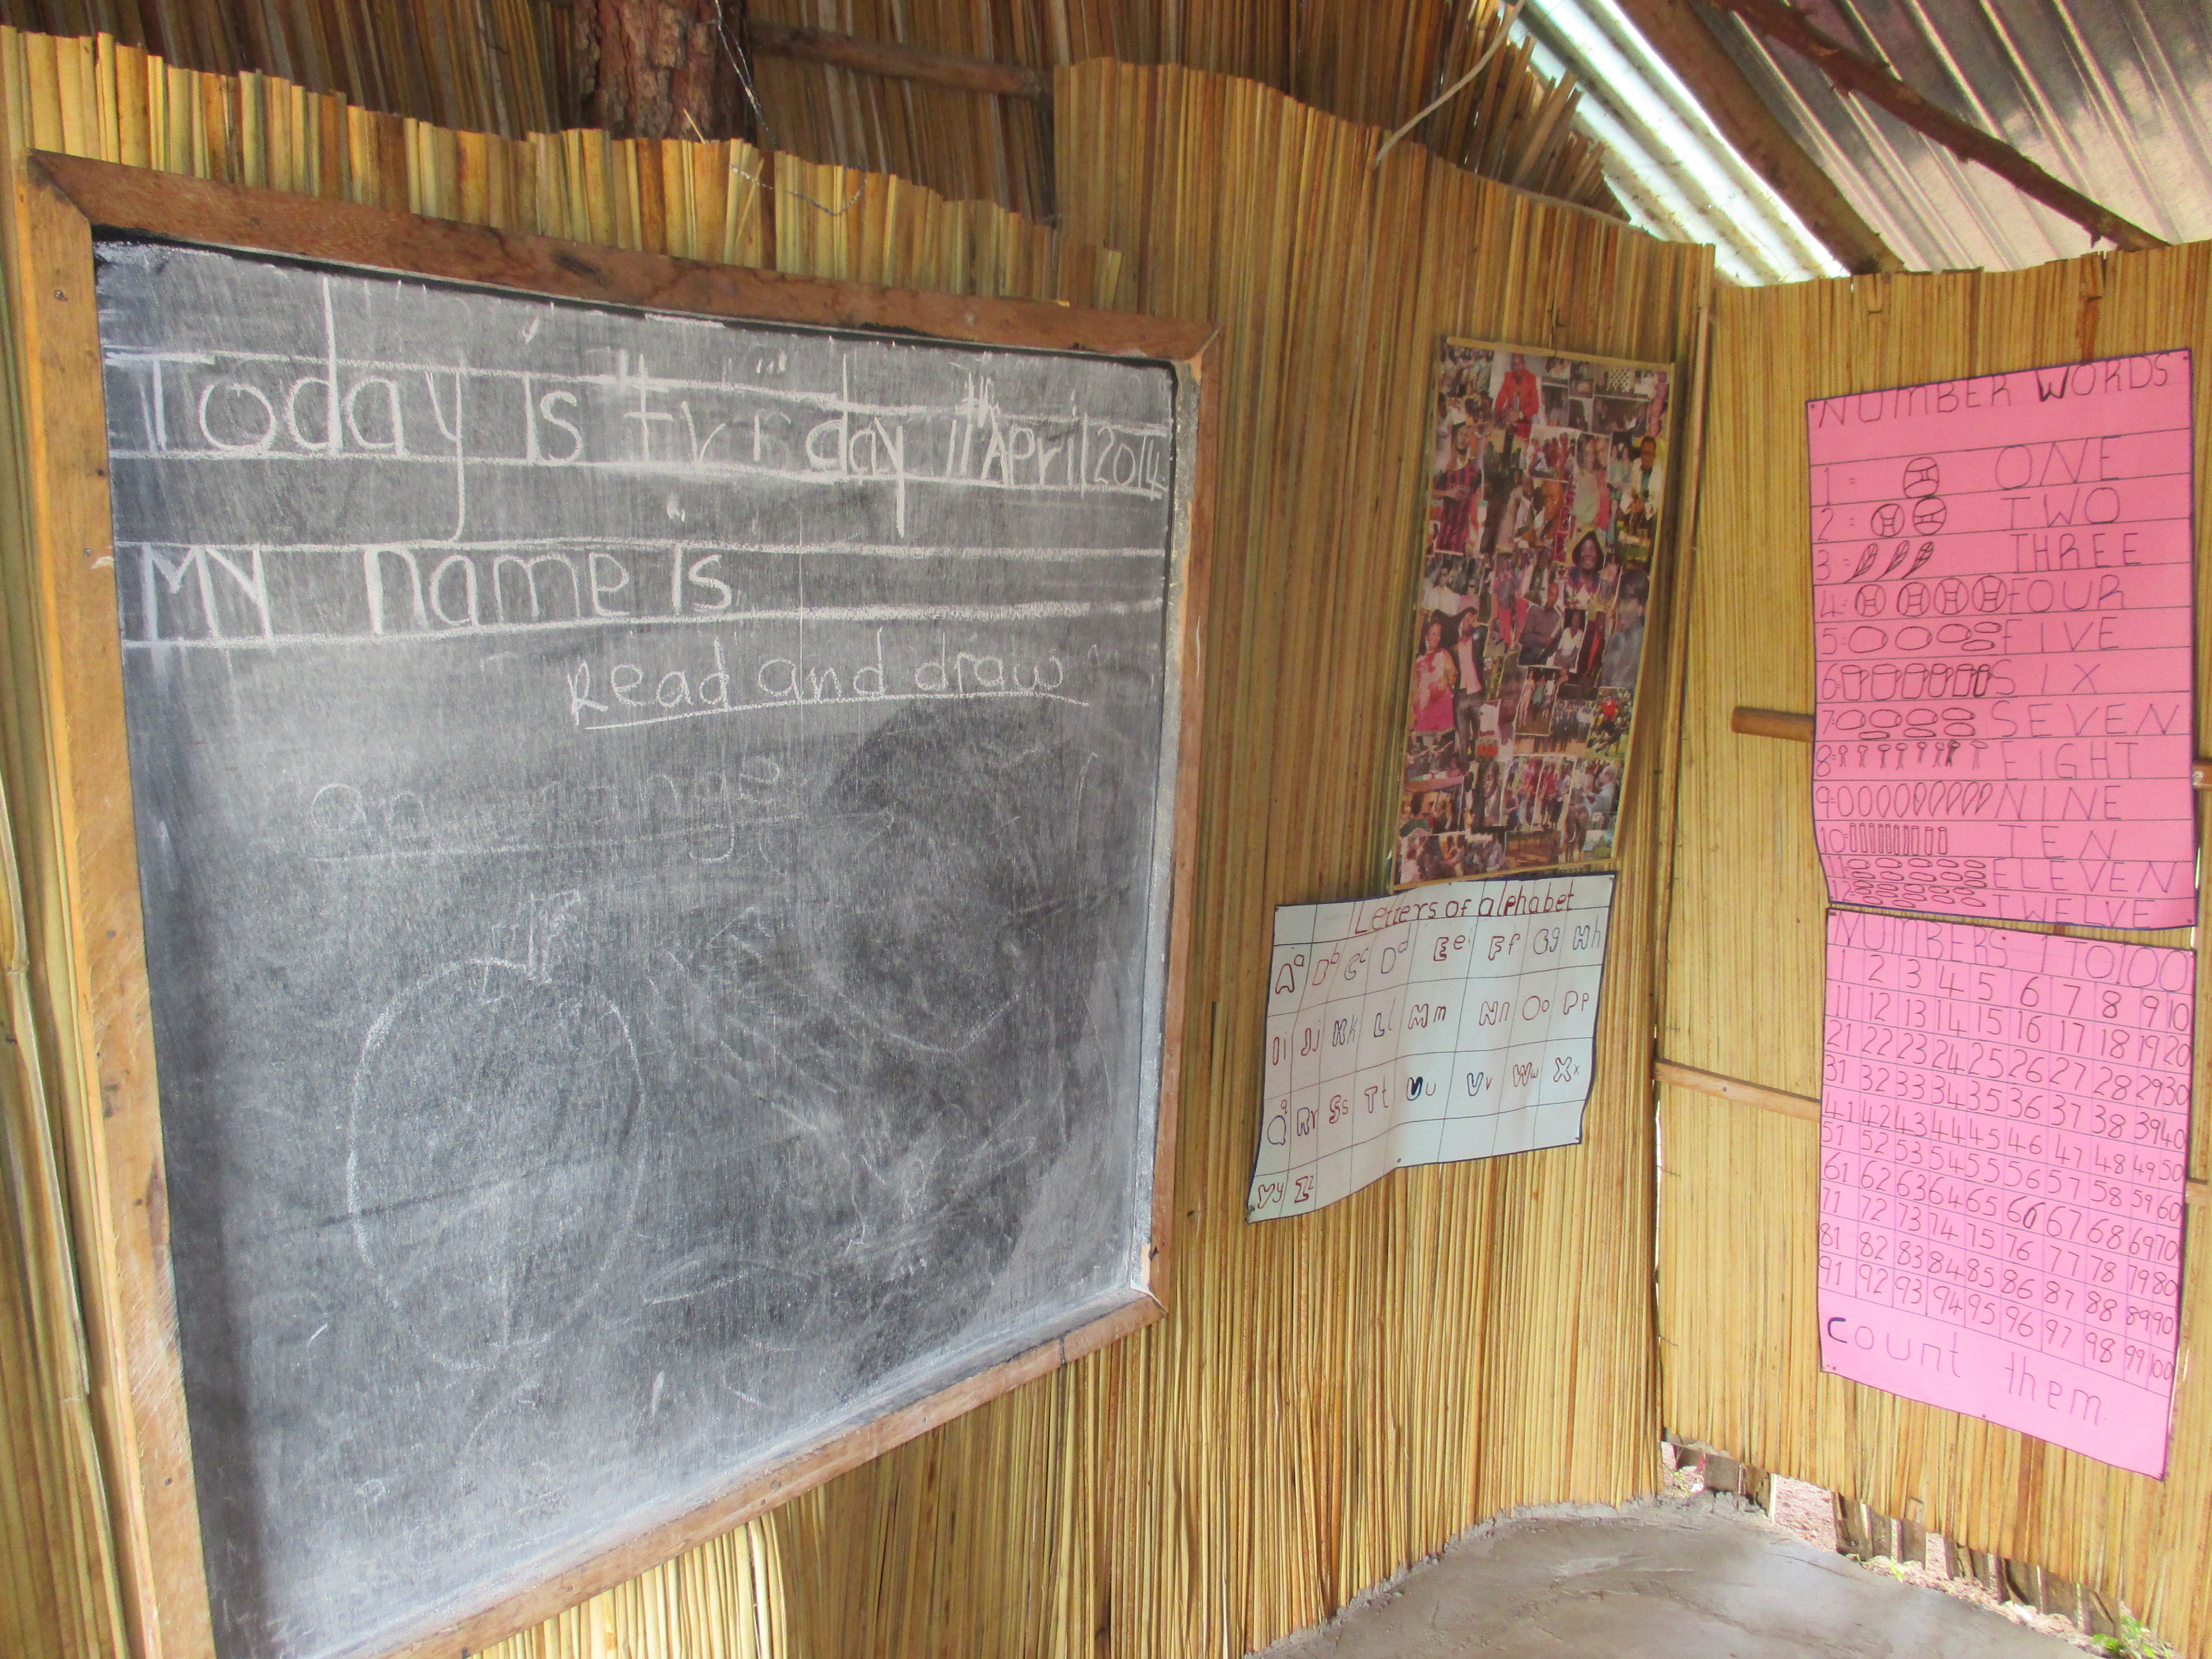 Today is Friday 11th April 2014
My name is
Read and draw
an orange
Letters of alphabet
Aa Bb Cc Dd Ee Ff Gg Hh
Ii Jj Kk Ll Mm Nn Oo Pp
Qq Rr Ss Tt Uu Vv Ww Xx
Yy Zz
NUMBER WORDS
1 = ONE
2 = TWO
3 = THREE
4 = FOUR
5 = FIVE
6 = SIX
7 = SEVEN
8 = EIGHT
9 = NINE
10 = TEN
11 = ELEVEN
12 = TWELVE
NUMBERS 1 TO 100
1 2 3 4 5 6 7 8 9 10
11 12 13 14 15 16 17 18 19 20
21 22 23 24 25 26 27 28 29 30
31 32 33 34 35 36 37 38 39 40
41 42 43 44 45 46 47 48 49 50
51 52 53 54 55 56 57 58 59 60
61 62 63 64 65 66 67 68 69 70
71 72 73 74 75 76 77 78 79 80
81 82 83 84 85 86 87 88 89 90
91 92 93 94 95 96 97 98 99 100
Count them